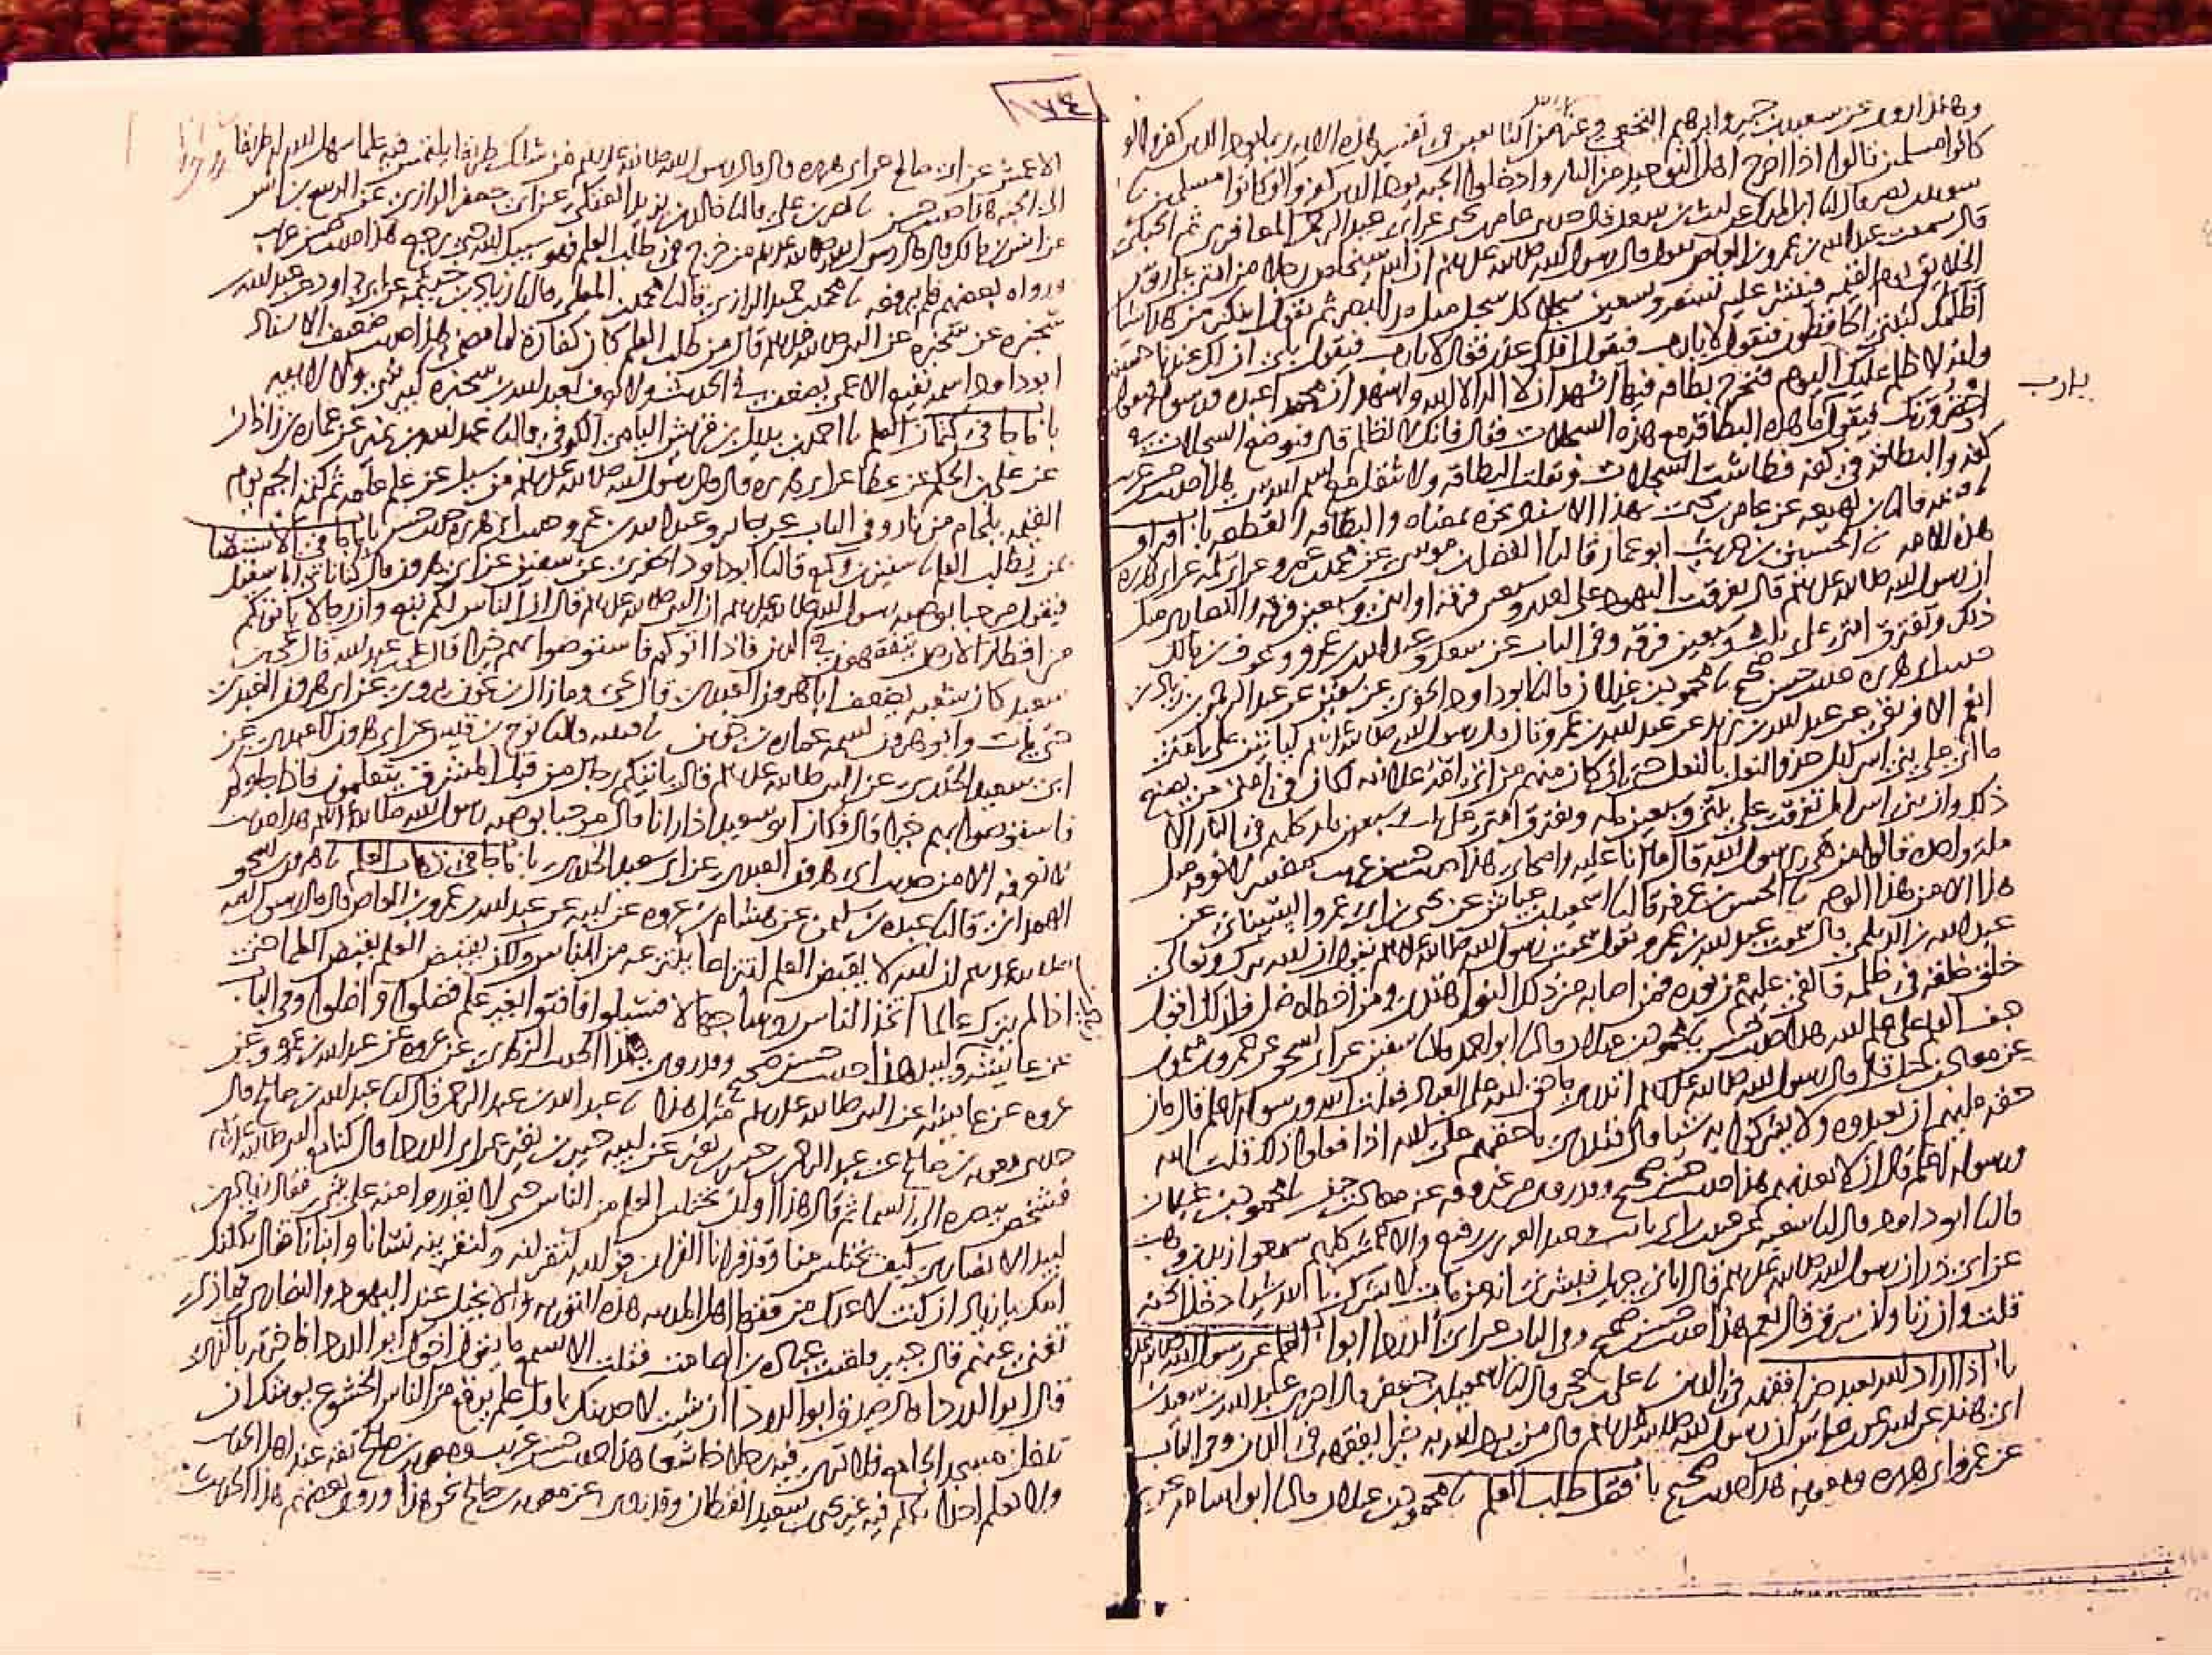 وهكذا روي عن سعيد بن جبير وابرهيم النخعي وغيرهم من التابعين في تفسير هذه الايه ربما يود الذين كفروا لو
كانوا مسلمين قالوا اذا اخرج اهل التوحيد من النار وادخلوا الجنه يود الذين كفروا لو كانوا مسلمين نا
سويد بن نصر قال انا ابن المبارك عن ليث بن سعد قال حدثني عامر بن يحيى عن ابي عبد الرحمن المعافري ثم الحبلي
قال سمعت عبد الله بن عمرو بن العاص يقول قال رسول الله صلى الله عليه وسلم ان الله سيخلص رجلا من امتي على روس
الخلايق يوم القيمه فينشر عليه تسعه وتسعين سجلا كل سجل مثل مد البصر ثم يقول اتنكر من هذا شيا
اظلمك كتبتي الحافظون فيقول لا يا رب فيقول افلك عذر فقال لا يا رب فيقول بلى ان لك عندنا حسنه
يا رب
وانه لا ظلم عليك اليوم فتخرج بطاقه فيها اشهد ان لا اله الا الله واشهد ان محمدا عبده ورسوله فيقول
احضر وزنك فيقول ما هذه البطاقه مع هذه السجلات فقال فانك لا تظلم قال فتوضع السجلات في
كفه والبطاقه في كفه فطاشت السجلات وثقلت البطاقه ولا يثقل مع اسم الله شي هذا حديث حسن غريب
نا قتيبه قال نا ابن لهيعه عن عامر بن يحيى بهذا الاسناد نحوه بمعناه والبطاقه القطعه باب افتراق
هذه الامه نا الحسين بن حريث ابو عمار قال نا الفضل بن موسى عن محمد بن عمرو عن ابي سلمه عن ابي هريره
ان رسول الله صلى الله عليه وسلم قال تفرقت اليهود على احدى وسبعين فرقه او اثنتين وسبعين فرقه والنصارى مثل
ذلك وتفترق امتي على ثلاث وسبعين فرقه وفي الباب عن سعد وعبد الله بن عمرو وعوف بن مالك
حديث ابي هريره حديث حسن صحيح نا محمود بن غيلان قال نا ابو داود الحفري عن سفين عن عبد الرحمن بن زياد بن
انعم الافريقي عن عبد الله بن يزيد عن عبد الله بن عمرو قال قال رسول الله صلى الله عليه وسلم لياتين على امتي
ما اتى على بني اسرائيل حذو النعل بالنعل حتى ان كان منهم من اتى امه علانيه لكان في امتي من يصنع
ذلك وان بني اسرائيل تفرقت على ثنتين وسبعين مله وتفترق امتي على ثلاث وسبعين مله كلهم في النار الا
مله واحده قالوا من هي يا رسول الله قال ما انا عليه واصحابي هذا حديث حسن غريب مفسر لا نعرفه مثل
هذا الا من هذا الوجه نا الحسن بن عرفه قال نا اسمعيل بن عياش عن يحيى بن ابي عمرو السيباني عن
عبد الله بن الديلمي قال سمعت عبد الله بن عمرو يقول سمعت رسول الله صلى الله عليه وسلم يقول ان الله تبرك وتعالى
خلق خلقه في ظلمه فالقى عليهم من نوره فمن اصابه من ذلك النور اهتدى ومن اخطاه ضل فلذلك اقول
جف القلم على علم الله هذا حديث حسن نا محمود بن غيلان قال نا ابو احمد قال نا سفين عن ابي اسحق عن عمرو بن ميمون
عن معاذ بن جبل قال قال رسول الله صلى الله عليه وسلم اتدري ما حق الله على العباد فقلت الله ورسوله اعلم قال فان
حقه عليهم ان يعبدوه ولا يشركوا به شيا قال فتدري ما حقهم على الله اذا فعلوا ذلك قلت الله
ورسوله اعلم قال ان لا يعذبهم هذا حديث حسن صحيح وقد روي من غير وجه عن معاذ بن جبل نا محمود بن غيلان
قال نا ابو داود قال نا شعبه عن حبيب بن ابي ثابت وعبد العزيز بن رفيع والاعمش كلهم سمعوا زيد بن وهب
عن ابي ذر ان رسول الله صلى الله عليه وسلم قال اتاني جبريل فبشرني انه من مات لا يشرك بالله شيا دخل الجنه
قلت وان زنا وان سرق قال نعم هذا حديث حسن صحيح وفي الباب عن ابي الدرداء ابواب العلم عن رسول الله صلى الله عليه وسلم
باب اذا اراد الله بعبد خيرا فقهه في الدين نا علي بن حجر قال نا اسمعيل بن جعفر قال اخبرني عبد الله بن سعيد بن
ابي هند عن ابيه عن ابن عباس ان رسول الله صلى الله عليه وسلم قال من يرد الله به خيرا يفقهه في الدين وفي الباب
عن عمر وابي هريره ومعويه هذا حديث صحيح باب فضل طلب العلم نا محمود بن غيلان قال نا ابو اسامه عن
١٧٤
الاعمش عن ابي صالح عن ابي هريره قال قال رسول الله صلى الله عليه وسلم من سلك طريقا يلتمس فيه علما سهل الله له طريقا
الى الجنه هذا حديث حسن نا نصر بن علي قال نا خالد بن يزيد العتكي عن ابي جعفر الرازي عن الربيع بن انس
عن انس بن مالك قال قال رسول الله صلى الله عليه وسلم من خرج في طلب العلم فهو في سبيل الله حتى يرجع هذا حديث حسن غريب
ورواه بعضهم فلم يرفعه نا محمد بن حميد الرازي قال نا محمد بن المعلى قال نا زياد بن خيثمه عن ابي داود عن عبد الله بن
سخبره عن سخبره عن النبي صلى الله عليه وسلم قال من طلب العلم كان كفاره لما مضى هذا حديث ضعيف الاسناد
ابو داود اسمه نفيع الاعمى يضعف في الحديث ولا نعرف لعبد الله بن سخبره كبير شي ولا لابيه
باب ما جا في كتمان العلم نا احمد بن بديل بن قريش اليامي الكوفي قال نا عبد الله بن نمير عن عماره بن زاذان
عن علي بن الحكم عن عطا عن ابي هريره قال قال رسول الله صلى الله عليه وسلم من سيل عن علم علمه ثم كتمه الجم يوم
القيمه بلجام من نار وفي الباب عن جابر وعبد الله بن عمرو حديث ابي هريره حديث حسن باب ما جا في الاستيصا
بمن يطلب العلم نا سفين بن وكيع قال نا ابو داود الحفري عن سفين عن ابي هرون قال كنا ناتي ابا سعيد
فيقول مرحبا بوصيه رسول الله صلى الله عليه وسلم ان النبي صلى الله عليه وسلم قال ان الناس لكم تبع وان رجالا ياتونكم
من اقطار الارض يتفقهون في الدين فاذا اتوكم فاستوصوا بهم خيرا قال علي بن عبد الله قال يحيى بن
سعيد كان شعبه يضعف ابا هرون العبدي قال يحيى وما زال ابن عون يروي عن ابي هرون العبدي
حتى مات وابو هرون اسمه عماره بن جوين نا قتيبه قال نا نوح بن قيس عن ابي هرون العبدي عن
ابي سعيد الخدري عن النبي صلى الله عليه وسلم قال ياتيكم رجال من قبل المشرق يتعلمون فاذا جاوكم
فاستوصوا بهم خيرا قال فكان ابو سعيد اذا رانا قال مرحبا بوصيه رسول الله صلى الله عليه وسلم هذا حديث
لا نعرفه الا من حديث ابي هرون العبدي عن ابي سعيد الخدري باب ما جا في ذهاب العلم نا هرون بن اسحق
الهمداني قال نا عبده بن سليمن عن هشام بن عروه عن ابيه عن عبد الله بن عمرو بن العاص قال قال رسول الله
صلى الله عليه وسلم ان الله لا يقبض العلم انتزاعا ينتزعه من الناس ولكن يقبض العلم بقبض العلما حتى
اذا لم يترك عالما اتخذ الناس روسا جهالا فسيلوا فافتوا بغير علم فضلوا واضلوا وفي الباب
عن عايشه وزياد بن لبيد هذا حديث حسن صحيح وقد روى هذا الحديث الزهري عن عروه عن عبد الله بن عمرو وعن
عروه عن عايشه عن النبي صلى الله عليه وسلم مثل هذا نا عبد الله بن عبد الرحمن قال انا عبد الله بن صالح قال
حدثني معويه بن صالح عن عبد الرحمن بن جبير بن نفير عن ابيه جبير بن نفير عن ابي الدرداء قال كنا مع النبي صلى الله عليه وسلم
فشخص ببصره الى السما ثم قال هذا اوان يختلس العلم من الناس حتى لا يقدروا منه على شي فقال زياد بن
لبيد الانصاري كيف يختلس منا وقد قرانا القران فو الله لنقرانه ولنقرينه نسانا وابنانا فقال ثكلتك
امك يا زياد ان كنت لاعدك من فقها اهل المدينه هذه التوريه والانجيل عند اليهود والنصارى فماذا
تغني عنهم قال جبير فلقيت عباده بن الصامت فقلت الا تسمع ما يقول اخوك ابو الدردا فاخبرته بالذي
قال ابو الدردا قال صدق ابو الدردا ان شيت لاحدثنك باول علم يرفع من الناس الخشوع يوشك ان
تدخل مسجد الجامع فلا ترى فيه رجلا خاشعا هذا حديث حسن غريب ومعويه بن صالح ثقه عند اهل الحديث
ولا نعلم احدا تكلم فيه غير يحيى بن سعيد القطان وقد روي عن معويه بن صالح نحو هذا وروى بعضهم هذا الحديث